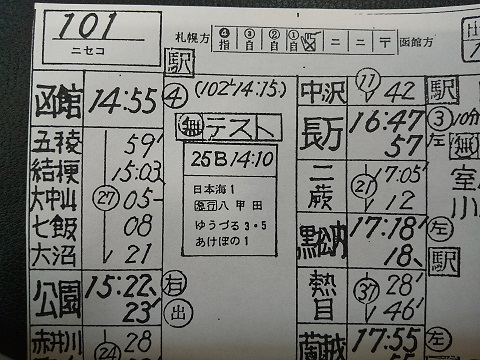 101
ニセコ
札幌方
④ ③ ② ① 〒
指 自 自 自 ニ ニ
函館方
駅
函館 14:55 ④ (102レ14:15)
五稜 59
結梗 15:03
大中山 ㉗ 05
七飯 08
大沼 21
公園 15:22
23
右
出
赤井川 ㉔ 28
無 テスト
25B 14:10
日本海1
急行 八甲田
ゆうづる3・5
あけぼの1
中沢 ⑪ 42 駅
長万 16:47 ③ 10分
57 左 無
二 ㉑ 17:05 室
蕨 12 小
黒松内 17:18 左
18 駅
熱 ㊲ 28
目 46
蘭越 17:55 左
55 駅